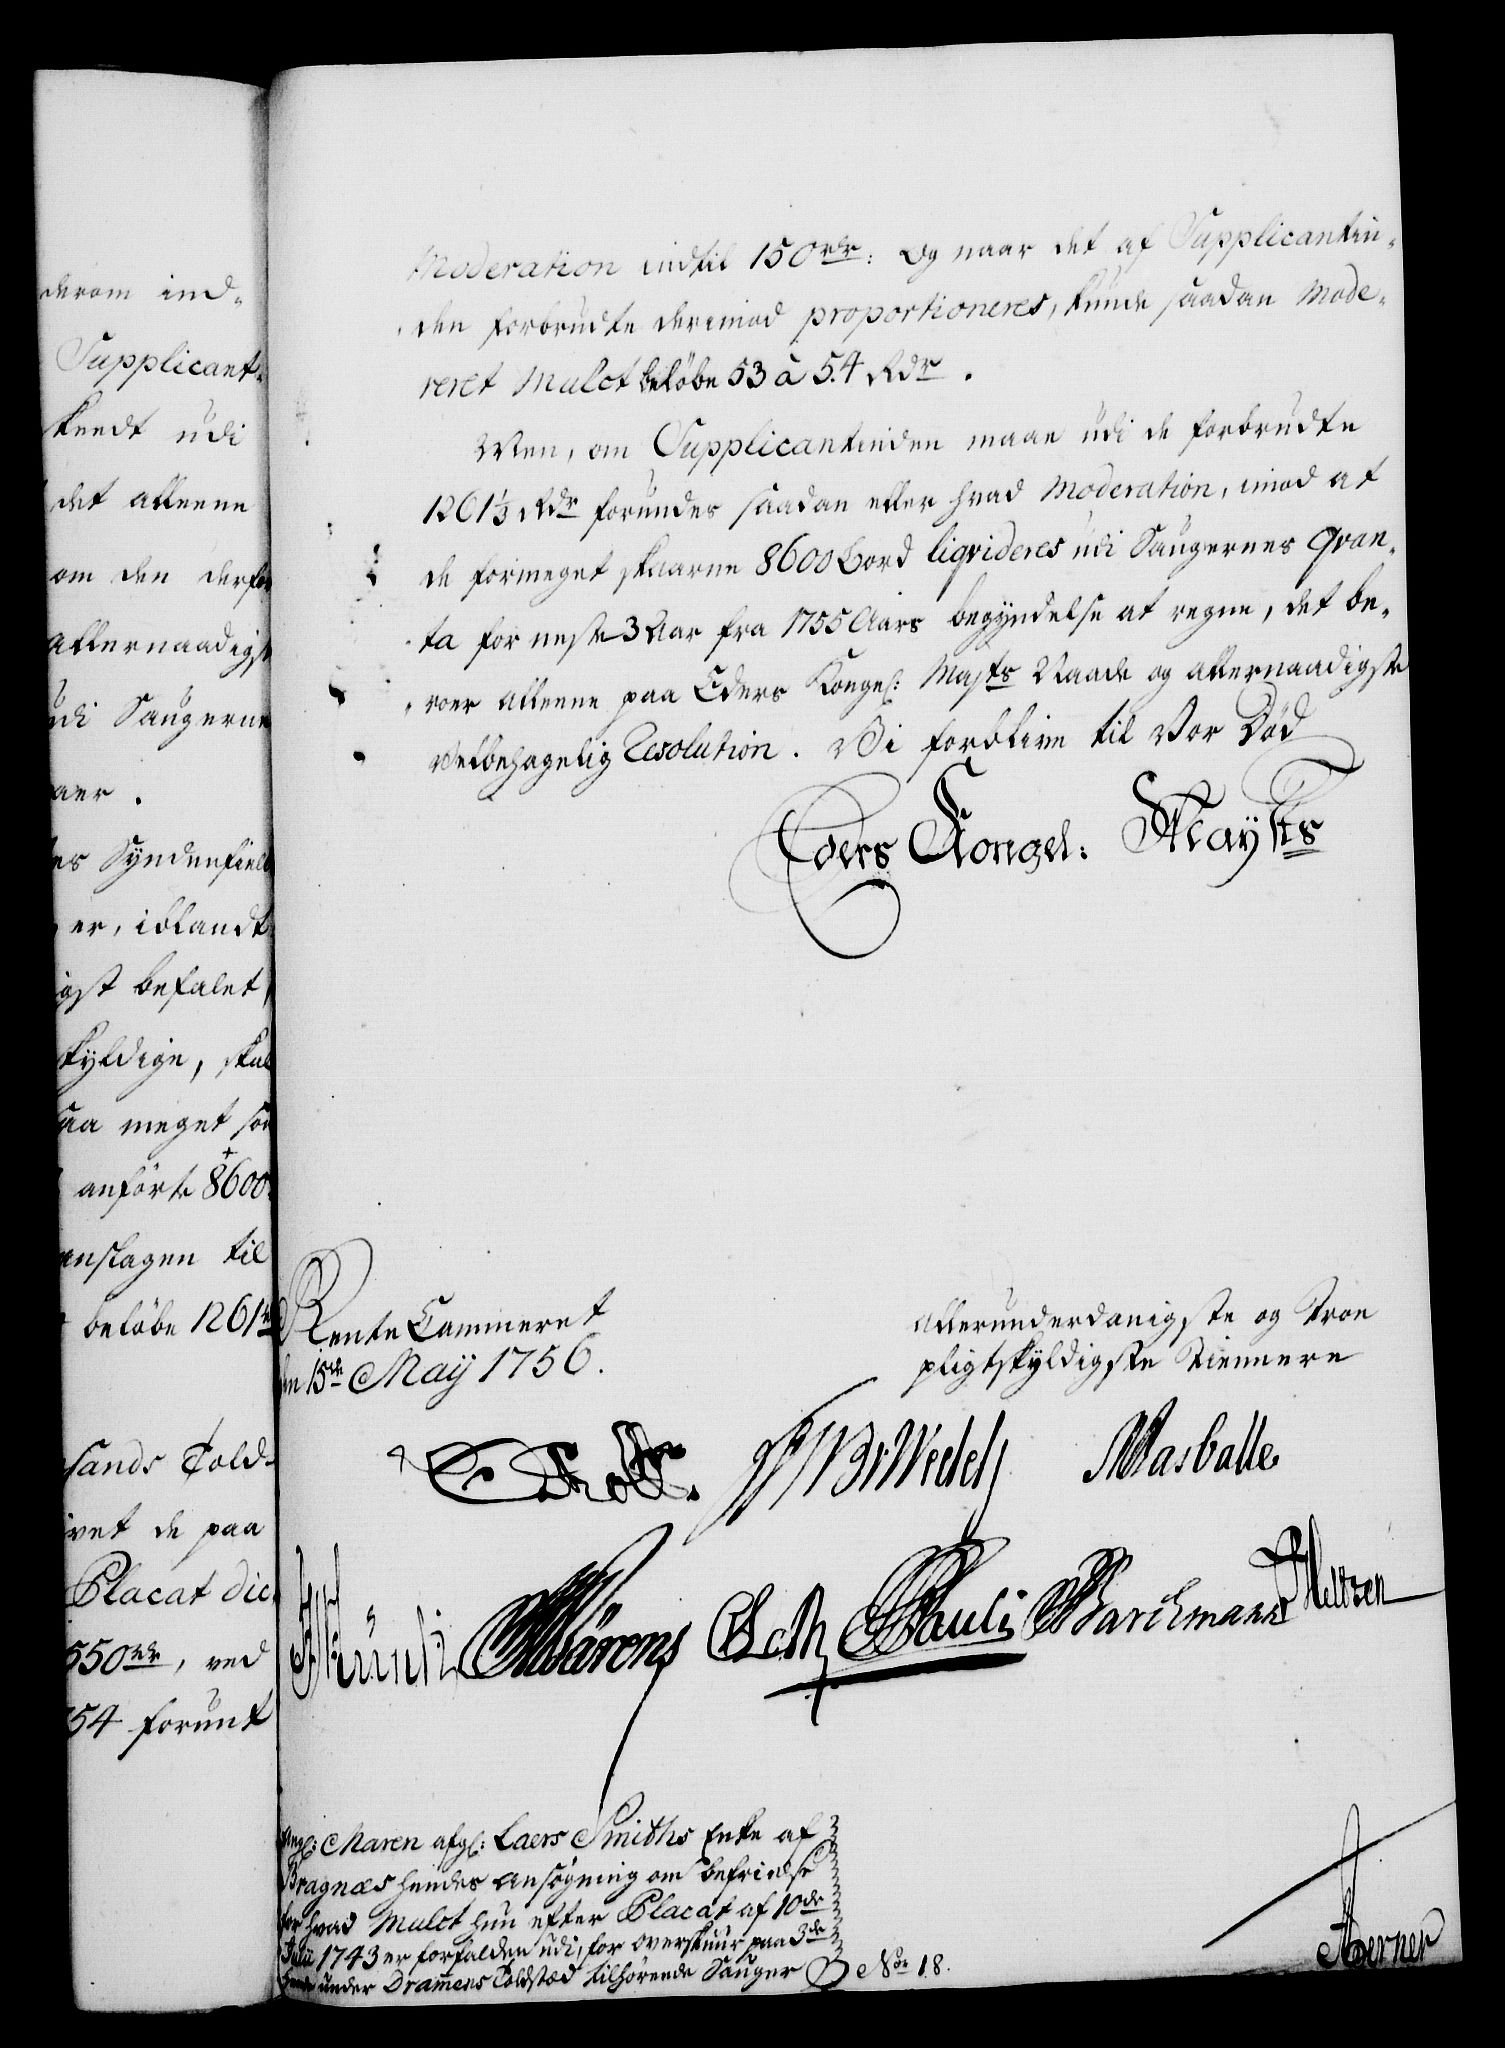 derom ind-
Supplicant-
skeedt udi
det alleene
om den derfor
allernaadigst
udi Saugerne
aer.
es Syndenfield
er, iblandt
igst befalet,
skyldige, skal
saa meget so
anförte 8600
anslagen til
beløbe 1261
sands Told-
ivet de paa
Placat dic-
550 rdr, ved
54 forunt
Moderation indtil 150 rdr: Og naar det af Supplicantin-
den forbrudte derimod proportioneres, kunde saadan Mode-
reret Mulct beløbe 53 à 54 Rdr.
Men, om Supplicantinden maae udi de forbrudte
1261⅓ Rdr forundes saadan eller hvad Moderation, imod at
de formeget skaarne 8600 Bord liqvideres udi Saugernes Qvan-
ta for neste 3 Aar fra 1755 Aars begyndelse at regne, det be-
roer alleene paa Eders Kongel: Majts Naade og allernaadigste
velbehagelig Resolution. Vi forblive til Vor Død
Eders Kongel: Mayts
Rente Cammeret
den 15de May 1756.
allerunderdanigste og troe
pligtskyldigste Tiennere
Wedel
Masballe
Pauli
Barchmann
Meltzen
Angl: Maren afgl: Laers Smiths Enke af
Bragnæs hendes Ansøgning om befrielse
for hvad Mulct hun efter Placat af 10de
Julii 1743 er forfalden udi, for overskuur paa 3de
hende under Dramens Toldsted tilhørende Sauger
No. 18.
Aberner